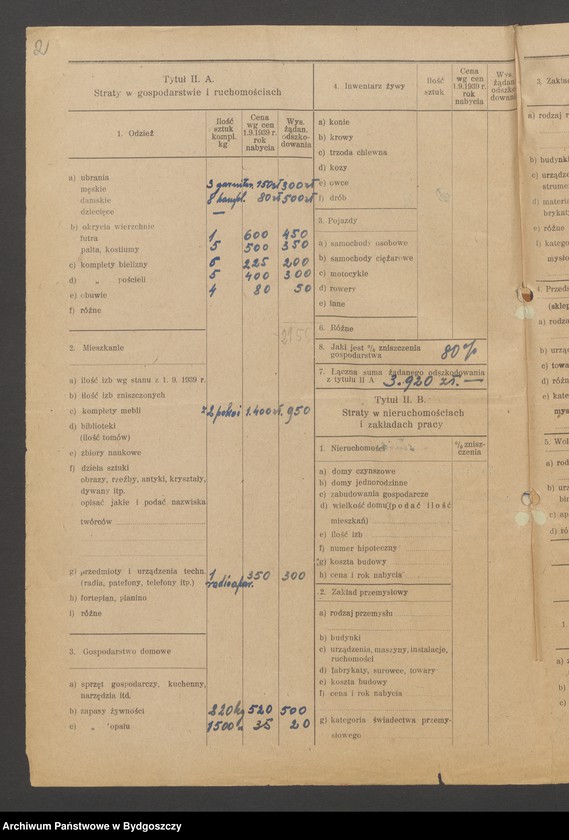 21
Tytuł II. A.
Straty w gospodarstwie i ruchomościach
1. Odzież
Ilość sztuk kompl. kg
Cena wg cen 1.9.1939 r. rok nabycia
Wys. żądan. odszko- dowania
a) ubrania
męskie 3 garnitur. 150 zł 300 zł
damskie 8 kompl. 80 zł 500 zł
dziecięce —
b) okrycia wierzchnie
futra 1 600 450
palta, kostiumy 5 500 350
c) komplety bielizny 6 225 200
d) „ pościeli 5 400 300
e) obuwie 4 80 50
f) różne
2. Mieszkanie
a) ilość izb wg stanu z 1. 9. 1939 r.
b) ilość izb zniszczonych
c) komplety mebli z 2 pokoi 1.400 zł. 950
d) biblioteki
(ilość tomów)
e) zbiory naukowe
f) dzieła sztuki
obrazy, rzeźby, antyki, kryształy,
dywany itp.
opisać jakie i podać nazwiska
twórców
g) przedmioty i urządzenia techn. 1 350 300
(radia, patefony, telefony itp.) radioapar.
h) fortepian, pianino
i) różne
3. Gospodarstwo domowe
a) sprzęt gospodarczy, kuchenny,
narzędzia itd.
b) zapasy żywności 220 kg 520 500
c) „ opału 1500 35 20
4. Inwentarz żywy
Ilość sztuk
Cena wg cen 1.9.1939 r. rok nabycia
Wys. żądan. odszko- dowania
a) konie
b) krowy
c) trzoda chlewna
d) kozy
e) owce
f) drób
5. Pojazdy
a) samochody osobowe
b) samochody ciężarowe
c) motocykle
d) rowery
e) inne
6. Różne
8. Jaki jest % zniszczenia
gospodarstwa 80%
7. Łączna suma żądanego odszkodowania
z tytułu II A 3.920 zł. —
Tytuł II. B.
Straty w nieruchomościach
i zakładach pracy
1. Nieruchomości
% znisz- czenia
a) domy czynszowe
b) domy jednorodzinne
c) zabudowania gospodarcze
d) wielkość domu (podać ilość
mieszkań)
e) ilość izb
f) numer hipoteczny
g) koszta budowy
h) cena i rok nabycia
2. Zakład przemysłowy
a) rodzaj przemysłu
b) budynki
c) urządzenia, maszyny, instalacje,
ruchomości
d) fabrykaty, surowce, towary
e) koszta budowy
f) cena i rok nabycia
g) kategoria świadectwa przemy-
słowego
3. Zakład
a) rodzaj r
b) budynki
c) urządze
strume
d) materia
brykaty
e) różne
f) katego
mysło
4. Przeds
(sklep
a) rodza
b) urzą
c) towa
d) różn
e) kate
mys
5. Wol
a) rod
b) urz
bi
c) ap
d) ró
1.
a)
b)
c)
Archiwum Państwowe w Bydgoszczy